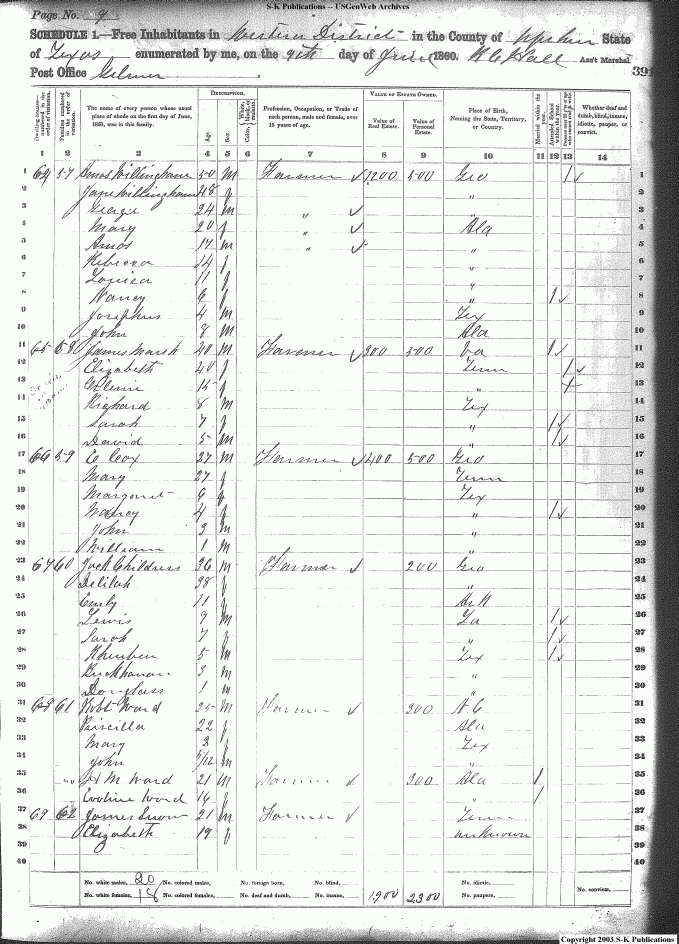 S-K Publications -- USGenWeb Archives
Page No. 9
SCHEDULE 1.—Free Inhabitants in Western District in the County of Upshur State
of Texas enumerated by me, on the 9th day of June 1860. Ass't Marshal
Post Office Gilmer 391
DESCRIPTION. VALUE OF ESTATE OWNED.
Dwelling-houses—numbered in the order of visitation. Families numbered in the order of visitation. The name of every person whose usual place of abode on the first day of June, 1860, was in this family. Age. Sex. Color, White, black, or mulatto. Profession, Occupation, or Trade of each person, male and female, over 15 years of age. Value of Real Estate. Value of Personal Estate. Place of Birth, Naming the State, Territory, or Country. Married within the year. Attended School within the year. Whether deaf and dumb, blind, insane, idiotic, pauper, or convict.
1 2 3 4 5 6 7 8 9 10 11 12 13 14
1 64 57 Amos Willinghame 50 m Farmer 1200 500 Geo / 1
2 Jane Willingham 48 f " 2
3 George 24 m " " 3
4 Mary 20 f " Ala 4
5 Amos 17 m " " 5
6 Rebecca 14 f " 6
7 Louisa 11 f " 7
8 Nancy 6 f " 1 8
9 Josephus 4 m Tex 9
10 John 8 m Ala 10
11 65 58 James Marsh 40 m Farmer 300 500 Va 1 11
12 Elizabeth 40 f Tenn / 12
13 15 f " 13
14 Richard 8 m Tex 14
15 Sarah 7 f " 1 15
16 David 5 m " 1 16
17 66 59 E Cox 27 m Farmer 400 500 Geo 17
18 Mary 27 f Tenn 18
19 Margaret 6 f Tex 19
20 Nancy 4 f " 1 20
21 John 3 m " 21
22 William 1 m 22
23 67 60 Jack Childress 36 m Farmer 200 Geo 23
24 Delilah 38 f " 24
25 Emily 11 f Ark 25
26 Lewis 9 m La 1 26
27 Sarah 7 f " 1 27
28 Rheuben 5 m Tex 1 28
29 Buckhanan 3 m " 29
30 Douglass 1 m " 30
31 68 61 Robt Ward 25 m Farmer 300 N C 31
32 Priscilla 22 f Ala 32
33 Mary 2 f Tex 33
34 John /12 m " 34
35 M Ward 21 m Farmer 300 Ala 1 35
36 Eveline Ward 16 f " 1 36
37 69 62 James Snow 21 m Farmer Tenn 37
38 Elizabeth 19 f unknown 38
39 39
40 40
No. white males, 20 No. colored males, No. foreign born, No. blind, 1900 2300 No. idiotic, No. convicts,
No. white females, 18 No. colored females, No. deaf and dumb, No. insane, No. paupers,
Copyright 2003 S-K Publications